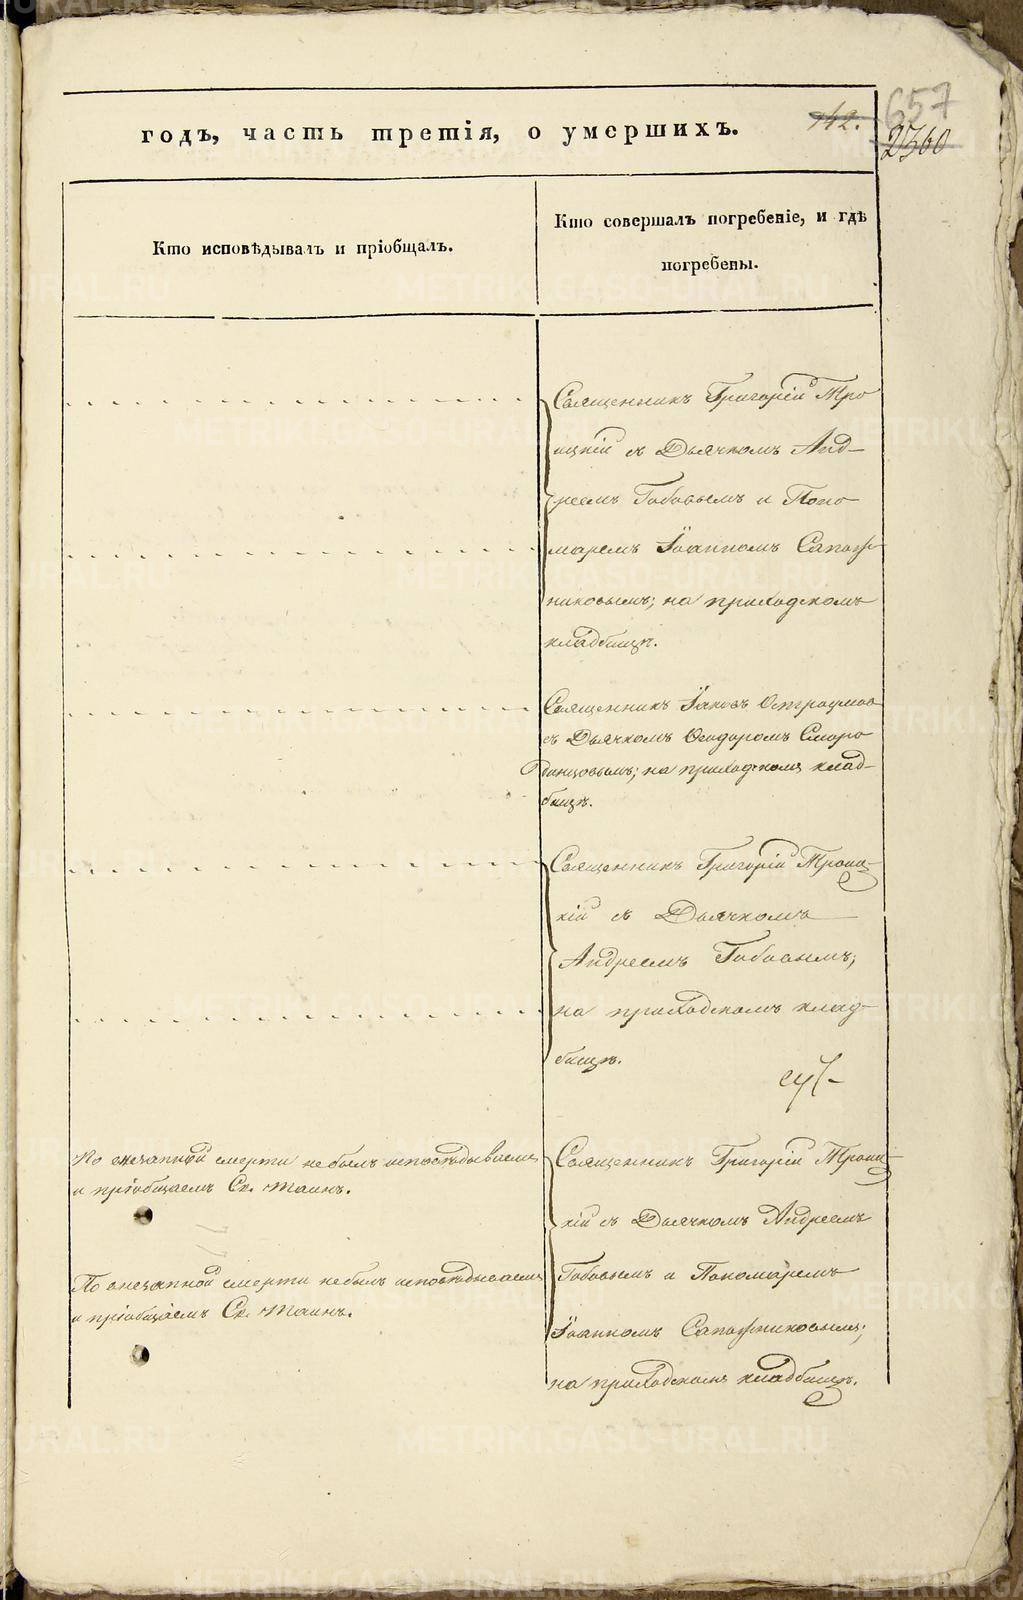 142.
657
2360
годъ, часть третія, о умершихъ.
Кто исповѣдывалъ и пріобщалъ.
Кто совершалъ погребеніе, и гдѣ
погребены.
Священникъ Григорій Тро
ицкій съ Дьячкомъ Анд-
реемъ Бабовымъ и Поно
маремъ Іоанномъ Сапож
никовымъ; на приходскомъ
кладбищѣ.
Священникъ Іаковъ Остроумов
съ Дьячкомъ Ѳеодоромъ Сморо
динцовымъ; на приходскомъ клад-
бищѣ.
Священникъ Григорій Троиц-
кій съ Дьячкомъ
Андреемъ Бабовымъ;
на приходскомъ клад-
бищѣ.
По внезапной смерти не былъ исповѣдываемъ
и пріобщаемъ Св. Таинъ.
Священникъ Григорій Троиц-
кій съ Дьячкомъ Андреемъ
По внезапной смерти не былъ исповѣдываемъ
и пріобщаемъ Св. Таинъ.
Бабовымъ и Пономаремъ
Іоанномъ Сапожниковымъ;
на приходскомъ кладбищѣ.
METRIKI.GASO-URAL.RU